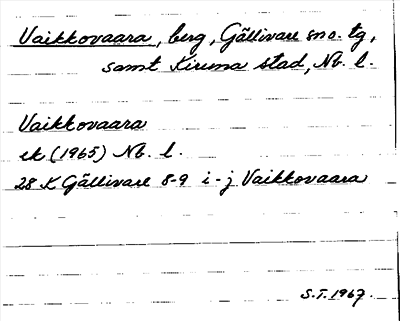 Vaikkovaara, berg, Gällivare sno. tg,
samt Kiruna stad, Nb. l.
Vaikkovaara
ek (1965) Nb. l.
28 K Gällivare 8-9 i-j Vaikkovaara
S.T. 1967.